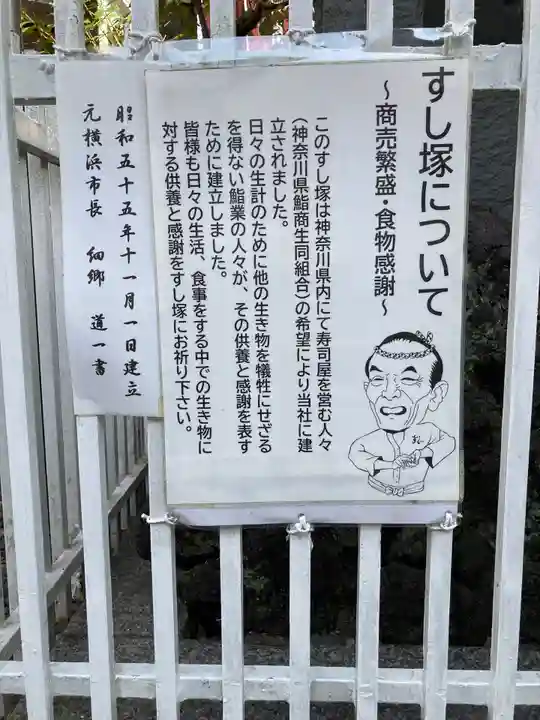 すし塚について
~商売繁盛・食物感謝~
このすし塚は神奈川県内にて寿司屋を営む人々
(神奈川県鮨商生同組合)の希望により当社に建
立されました。
日々の生計のために他の生き物を犠牲にせざる
を得ない鮨業の人々が、その供養と感謝を表す
ために建立しました。
皆様も日々の生活、食事をする中での生き物に
対する供養と感謝をすし塚にお祈り下さい。
昭和五十五年十一月一日建立
元横浜市長 細郷 道一書